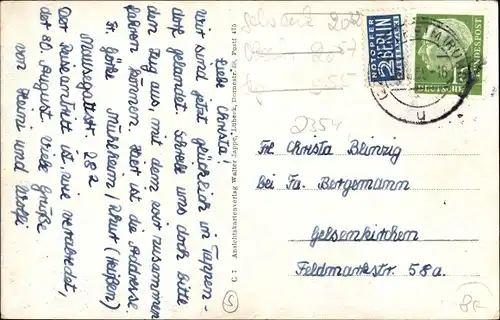 Liebe Christa!
Wir sind jetzt glücklich in Tappen-
dorf gelandet. Schreibe uns doch bitte
dem Zug aus, mit dem wir zusammen
fahren können. Hier ist die Adresse
Fr. Görke Mülheim/Ruhr (Heißen)
Mausegattstr. 282
Der Reiseantritt ist wie verabredet,
der 30. August. Viele Grüße
von Heini und
C 7 Ansichtskartenverlag Walter Jappe, Lübeck, Postf. 475
NOTOPFER
2 BERLIN
STEUERMARKE
DEUTSCHE
BUNDESPOST
2354
Frl. Christa Blonzig
bei Fa. Bergemann
Gelsenkirchen
Feldmarkstr. 58a.